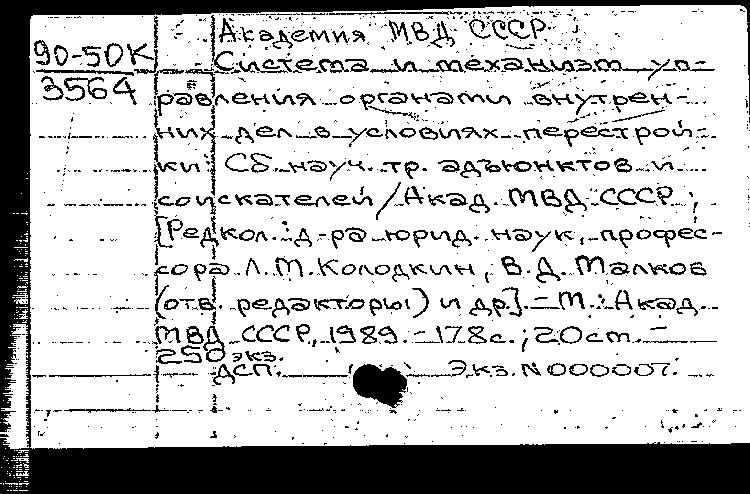 Академия МВД СССР
90-50К
3564
Система и механизм уп-
равления органами внутрен-
них дел в условиях перестрой-
ки: Сб. науч. тр. адъюнктов и
соискателей / Акад. МВД СССР;
[Редкол.: д-ра юрид. наук, профес-
сора Л.М. Колодкин, В.Д. Малков
(отв. редакторы) и др.]. - М.: Акад.
МВД СССР, 1989. - 178с.; 20см. -
250 экз.
ДСП. Экз. N 000007.